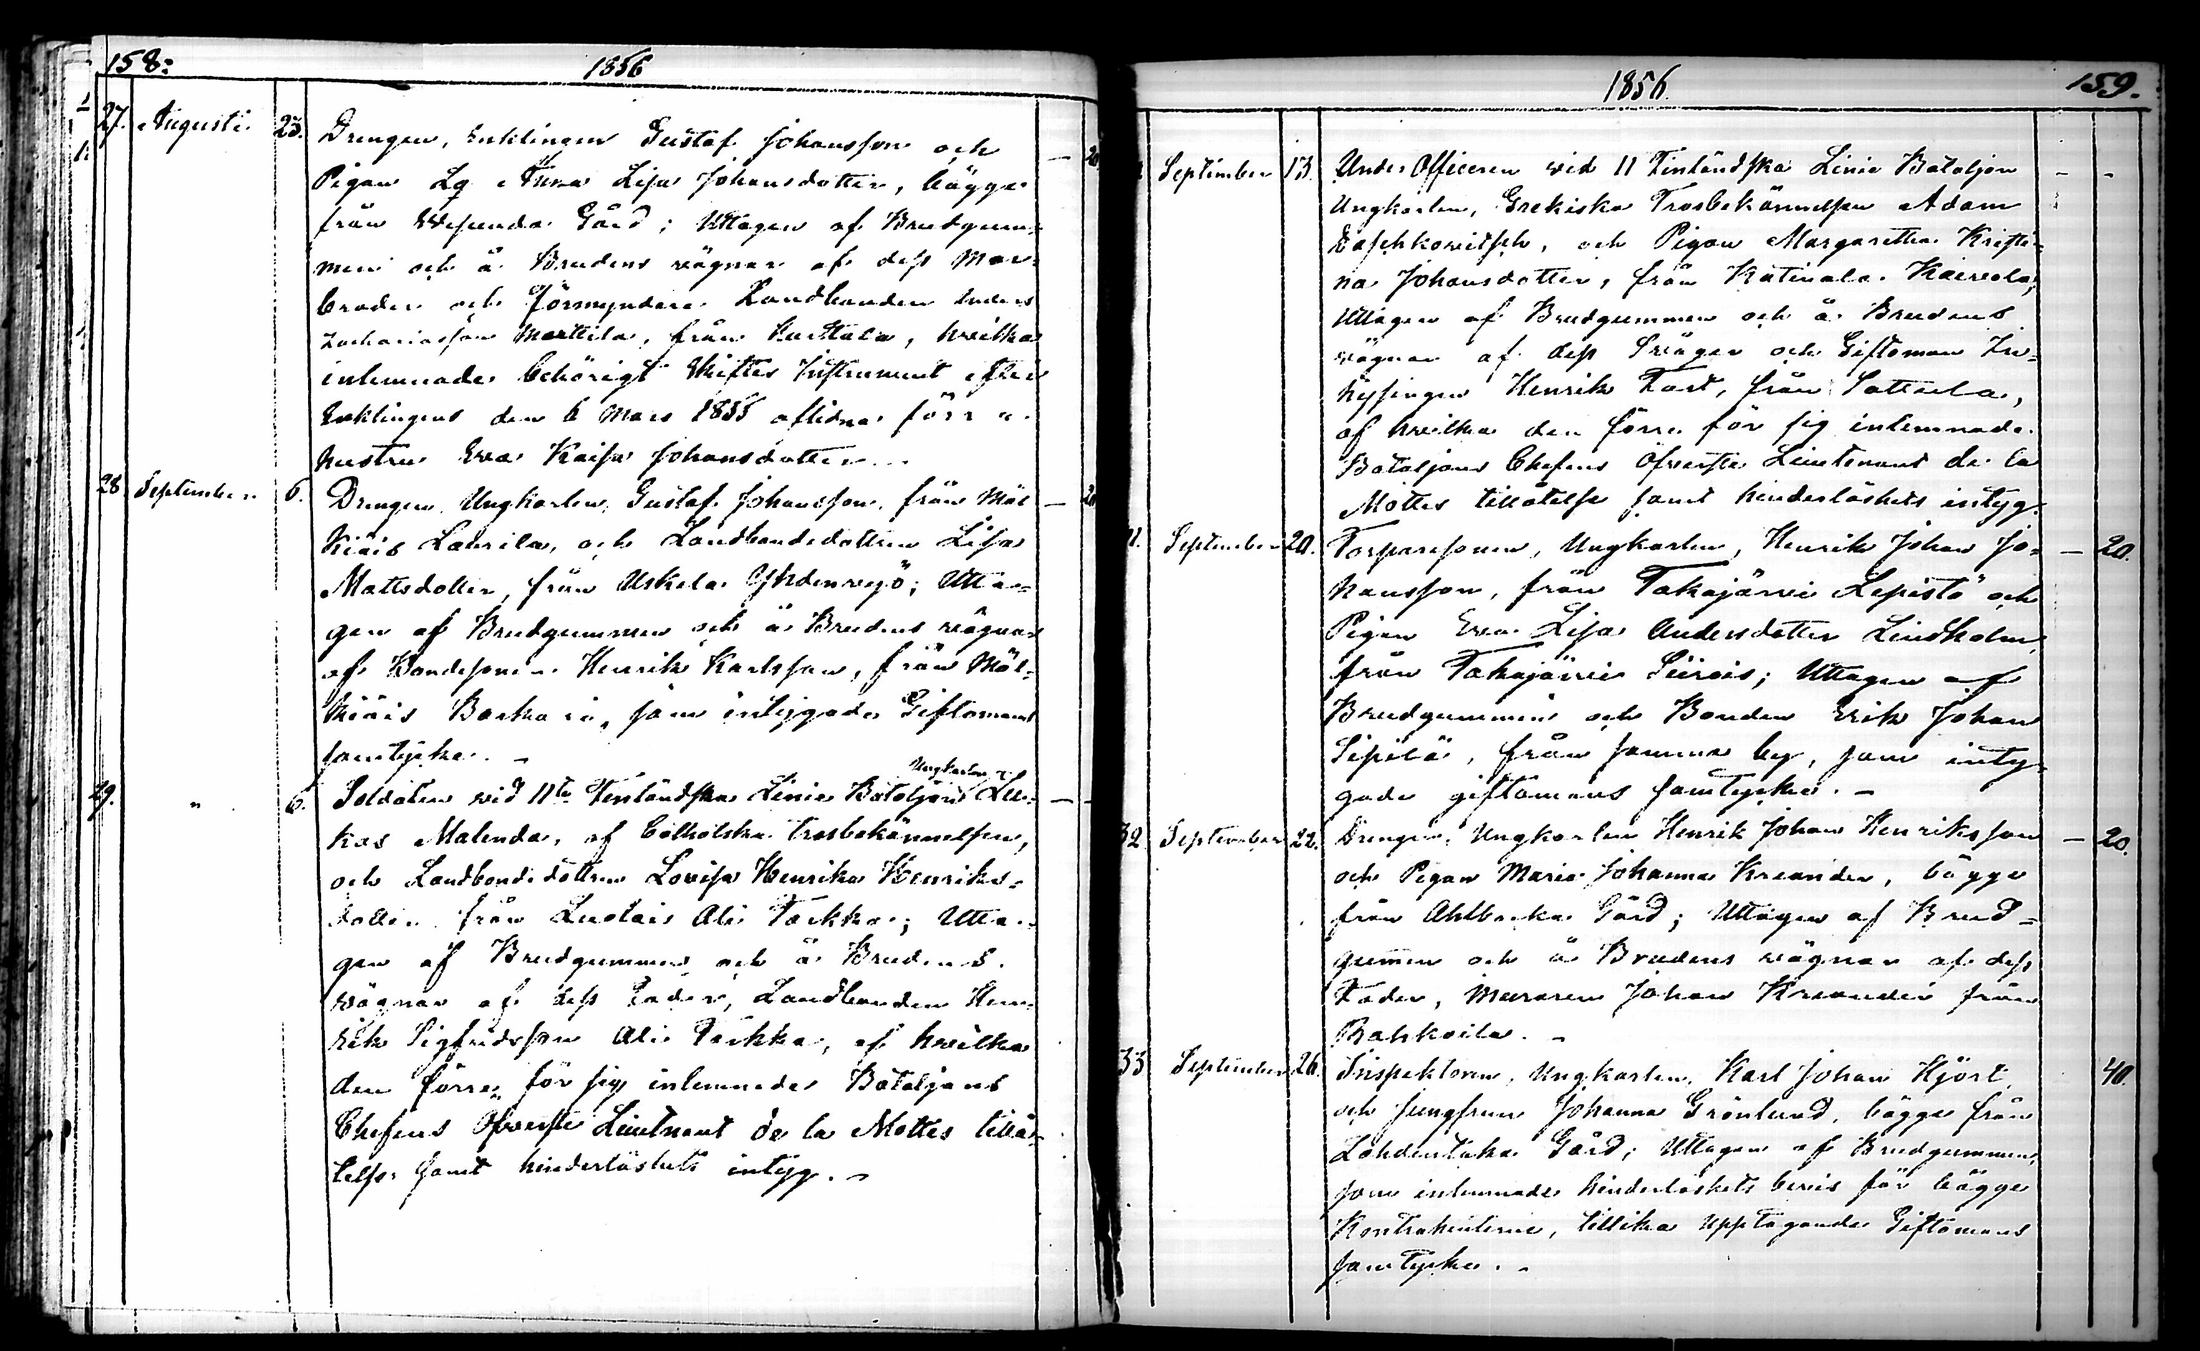 158:
1856
27. Augusti. 23. Drengen, Enklingen Gustaf Johansson och — 20
Pigan Lg Anna Lisa Johansdotter, bägge
från Wesunda Gård; Uttagen af Brudgum-
men och å Brudens vägnar af dess Mor-
broder och förmyndare Landbonden Anders
Zachariasson Marttila, från Kurttala, hvilka
inlemnade behörigt Skiftes Instrument efter
Enklingens den 6 Mars 1855 aflidna förra
hustru Eva Kaisa Johansdotter.
28 September 6. Drengen, Ungkarlen, Gustaf Johansson, från Mäl — 20
kiäis Laurila, och Landbondedottren Lisa
Mattsdotter, från Uskela Yhdensyjö; Utta-
gen af Brudgummen och å Brudens vägnar
af Bondesonen Henrik Karlsson, från Mäl-
kiäis, som intygade Giftomans
samtycke. —
Ungkarlen
29. " 6. Soldaten vid 11te Finländska Linie Bataljon Lu- — -
kas Malenda, af Catholska trosbekännelsen,
och Landbondedottren Lovisa Henrika Henriks-
dotter från Luolais Ali Parkka; Utta-
gen af Brudgummen och å Brudens
vägnar af dess Fader, Landbonden Hen-
rik Sigfridsson Ali Parkka, af hvilka
den förre för sig inlemnade Bataljons
Chefens Öfverste Lieutnant de la Mottes tillå-
telse samt hinderlöshets intyg. —
1856.
159.
September 13. Under Officeren vid 11 Finländska Linie Bataljon - -
Ungkarlen, Grekiska Trosbekännelsen Adam
Daschkowitsch, och Pigan Margaretha Kristi-
na Johansdotter, från Katinala Kairola;
Uttagen af Brudgummen och å Brudens
vägnar af dess Swåger och Giftoman In-
hysingen Henrik Fast, från Sattula,
af hvilka den förre för sig inlemnade
Bataljons Chefens Öfverste Lieutenant de la
Mottes tillåtelse samt hinderlöshets intyg.
September 20. Torparesonen, Ungkarlen, Henrik Johan Jo- — 20.
hansson, från Takajärvi Lepistö och
Pigan Eva Lisa Andersdotter Lindholm,
från Takajärvi Siirois; Uttagen af
Brudgummen och Bonden Erik Johan
Sipilä, från samma by, som inty-
gade giftomans samtycke. —
32 September 22. Drengen, Ungkarlen Henrik Johan Henriksson — 20.
och Pigan Maria Johanna Kreander, bägge
från Ahlbacka Gård; Uttagen af Brud-
gummen och å Brudens vägnar af dess
Fader, Muraren Johan Kreander från
Pahkoila. -
33 September 26. Inspektoren, Ungkarlen, Karl Johan Hjört, 40.
och Jungfrun Johanna Grönlund, bägge från
Lahdentaka Gård; Uttagen af Brudgummen,
som inlemnade hinderlöshets bevis för bägge
Kontrahenterne, tillika upptagande Giftomans
samtycke. -